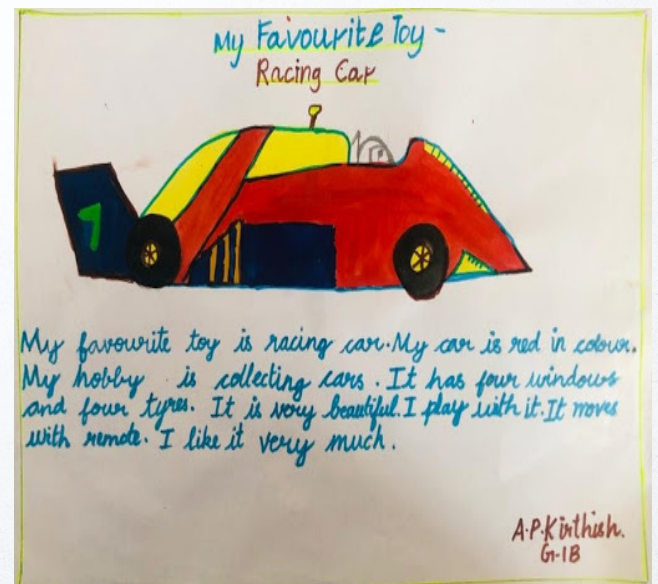 My Favourite Toy -
Racing Car
7
My favourite toy is racing car. My car is red in colour.
My hobby is collecting cars. It has four windows
and four tyres. It is very beautiful. I play with it. It moves
with remote. I like it very much.
A.P.Kirthish.
G-1B